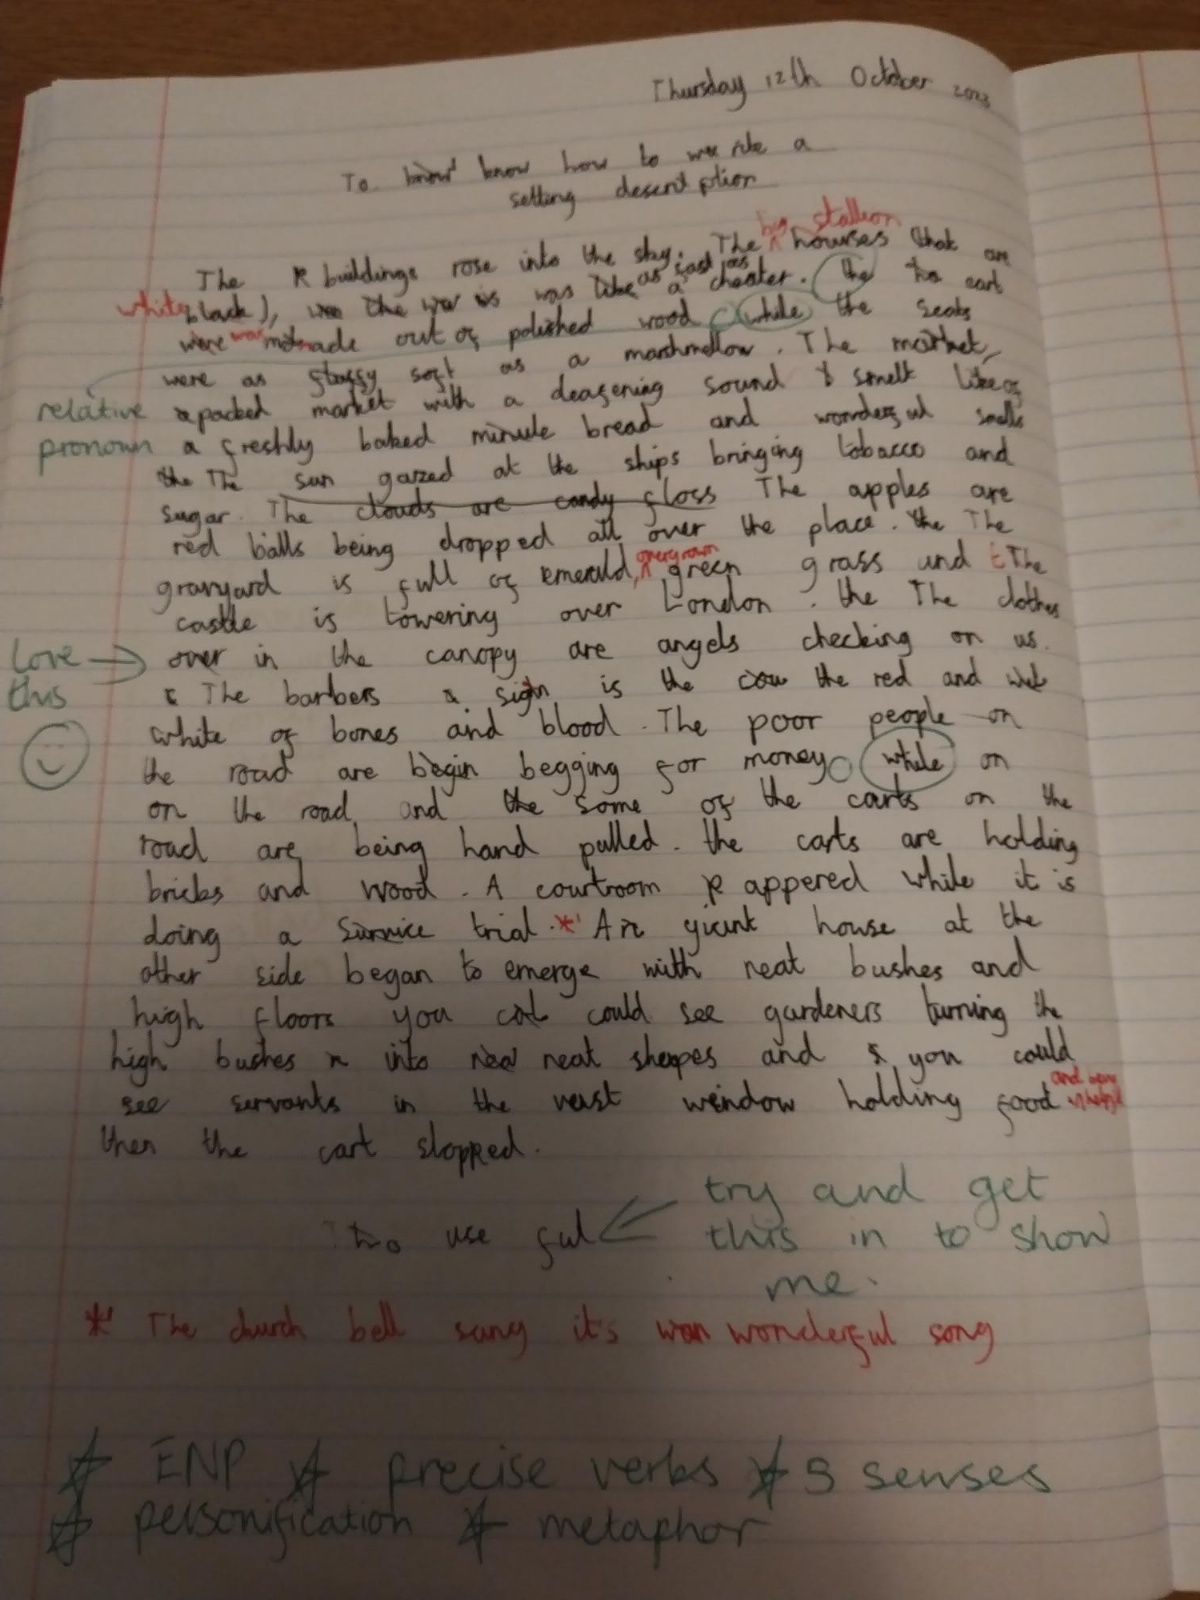 Thursday 12th October 2023
To know how to write a
setting description
big stallion
The buildings rose into the sky. The howrses that are
white black), was like as fast as a cheater. the the cart
were was made out of polished wood while the seats
were as soft as a marshmellow. The market,
relative a packed market with a deafening sound & smelt like of
pronoun a freshly baked minute bread and wonderful smells
the The sun gazed at the ships bringing tobacco and
sugar. The clouds are candy floss The apples are
red balls being dropped all over the place. the The
overgrown
gravyard is full of emerald, green grass and The
castle is towering over London. the The clothes
Love this over in the canopy are angels checking on us.
The barbers sign is the the red and
white of bones and blood. The poor people on
the road are begin begging for money while on
on the road and the some of the carts on the
road are being hand pulled. the carts are holding
bricks and wood. A courtroom appered while it is
doing a trial.* An giant house at the
other side began to emerge with neat bushes and
high floors you could see gardeners turning the
high bushes into neat shapes and you could
see servants in the vast window holding food and
then the cart stopped.
try and get
use ful this in to show
me.
* The church bell sang it's wonderful song
ENP precise verbs 5 senses
personification metaphor